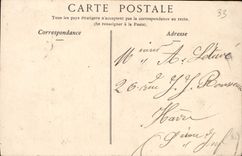 33
CARTE POSTALE
Tous les pays étrangers n'acceptent pas la correspondance au recto.
(Se renseigner à la Poste).
Correspondance
Adresse
A.
26 rue J. J. Rousseau
Havre